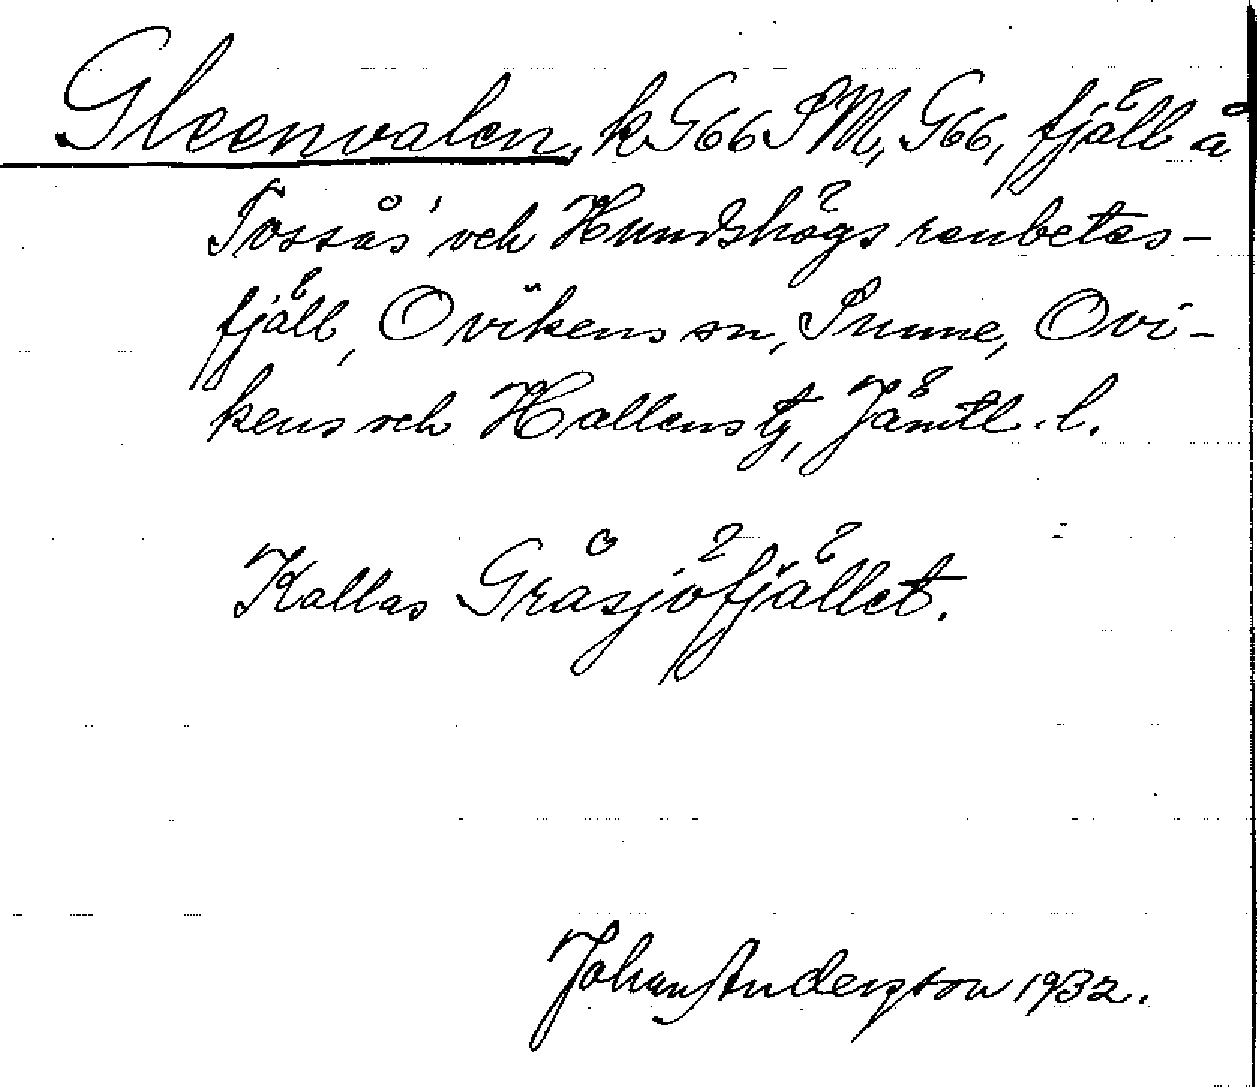 Gleenvalen, k G66 SM, G66, fjäll å
Tossås och Hundshögs renbetes-
fjäll, Ovikens sn, Sunne, Ovi-
kens och Hallens tg, Jämtl. l.
Kallas Gråsjöfjället.
Johan Anderzon 1932.